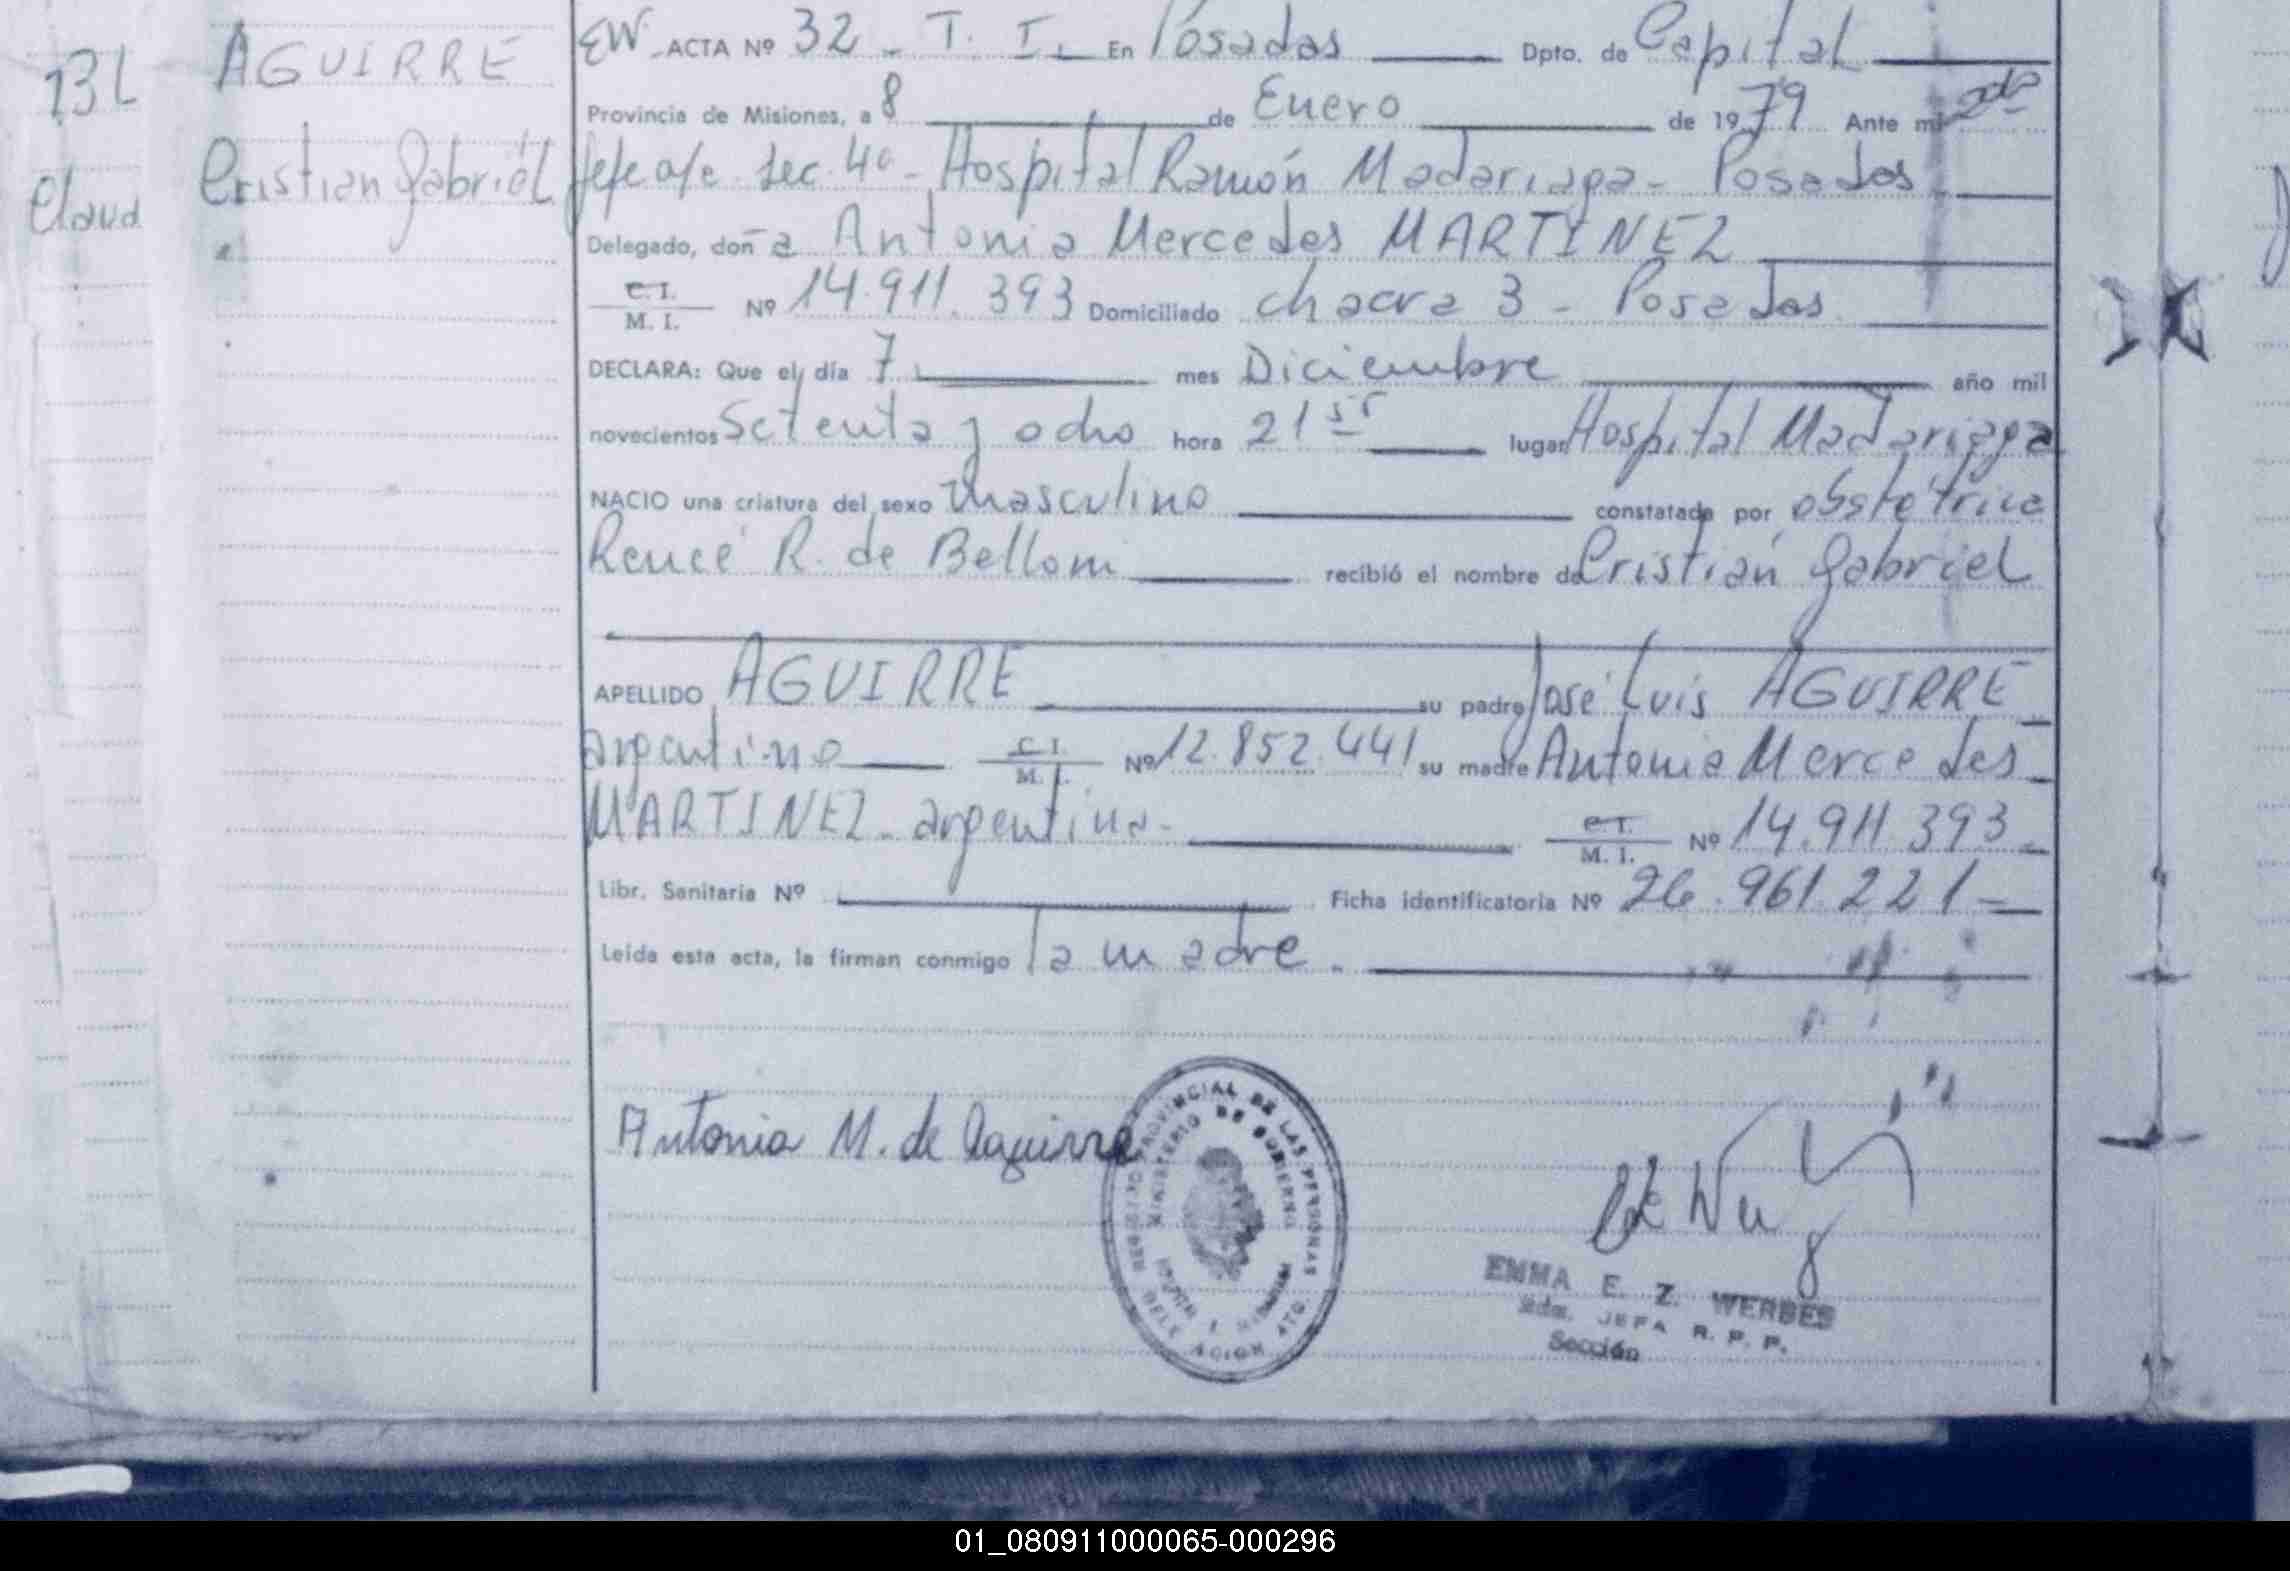 13L
Claud
AGUIRRE
Cristian Gabriel
EW. ACTA Nº 32 - T. I. En Posadas Dpto. de Capital
Provincia de Misiones, a 8 de Enero de 1979 Ante mi 2da
Jefe a/c Sec. 4a - Hospital Ramón Madariaga - Posadas
Delegado, doña Antonia Mercedes MARTINEZ
C. I. / M. I. Nº 14.911.393 Domiciliado chacra 3 - Posadas
DECLARA: Que el día 7 mes Diciembre año mil
novecientos Setenta y ocho hora 21 15 lugar Hospital Madariaga
NACIO una criatura del sexo masculino constatada por obstétrica
Reneé R. de Bellom recibió el nombre de Cristian Gabriel
APELLIDO AGUIRRE su padre José Luis AGUIRRE
argentino C. I. / M. I. Nº 12.852.441 su madre Antonia Mercedes
MARTINEZ - argentina - C. I. / M. I. Nº 14.911.393
Libr. Sanitaria Nº Ficha identificatoria Nº 26.961.221
Leída esta acta, la firman conmigo la madre.
Antonia M. de Aguirre
REGISTRO PROVINCIAL DE LAS PERSONAS
MINISTERIO DE GOBIERNO
EMMA E. Z. WERBES
JEFA R. P. P.
Sección
01_080911000065-000296